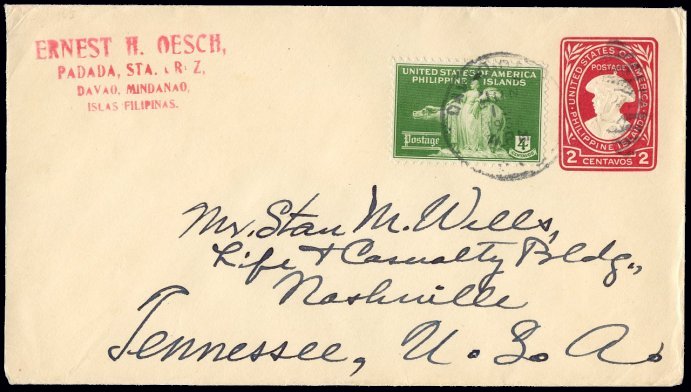 ERNEST H. OESCH,
PADADA, STA. CRUZ,
DAVAO, MINDANAO,
ISLAS FILIPINAS.
UNITED STATES OF AMERICA
PHILIPPINE ISLANDS
Postage
4
UNITED STATES OF AMERICA
POSTAGE
PHILIPPINE ISLANDS
2 CENTAVOS 2
Mr. Stan M. Wells,
Life & Casualty Bldg.,
Nashville
Tennessee, U. S. A.